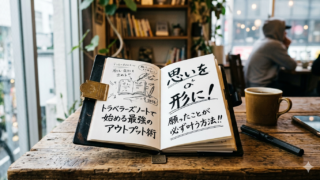 トラベラーズノートで
始める最強の
アウトプット術
思いを
形に!
願ったことが
必ず叶う方法!!